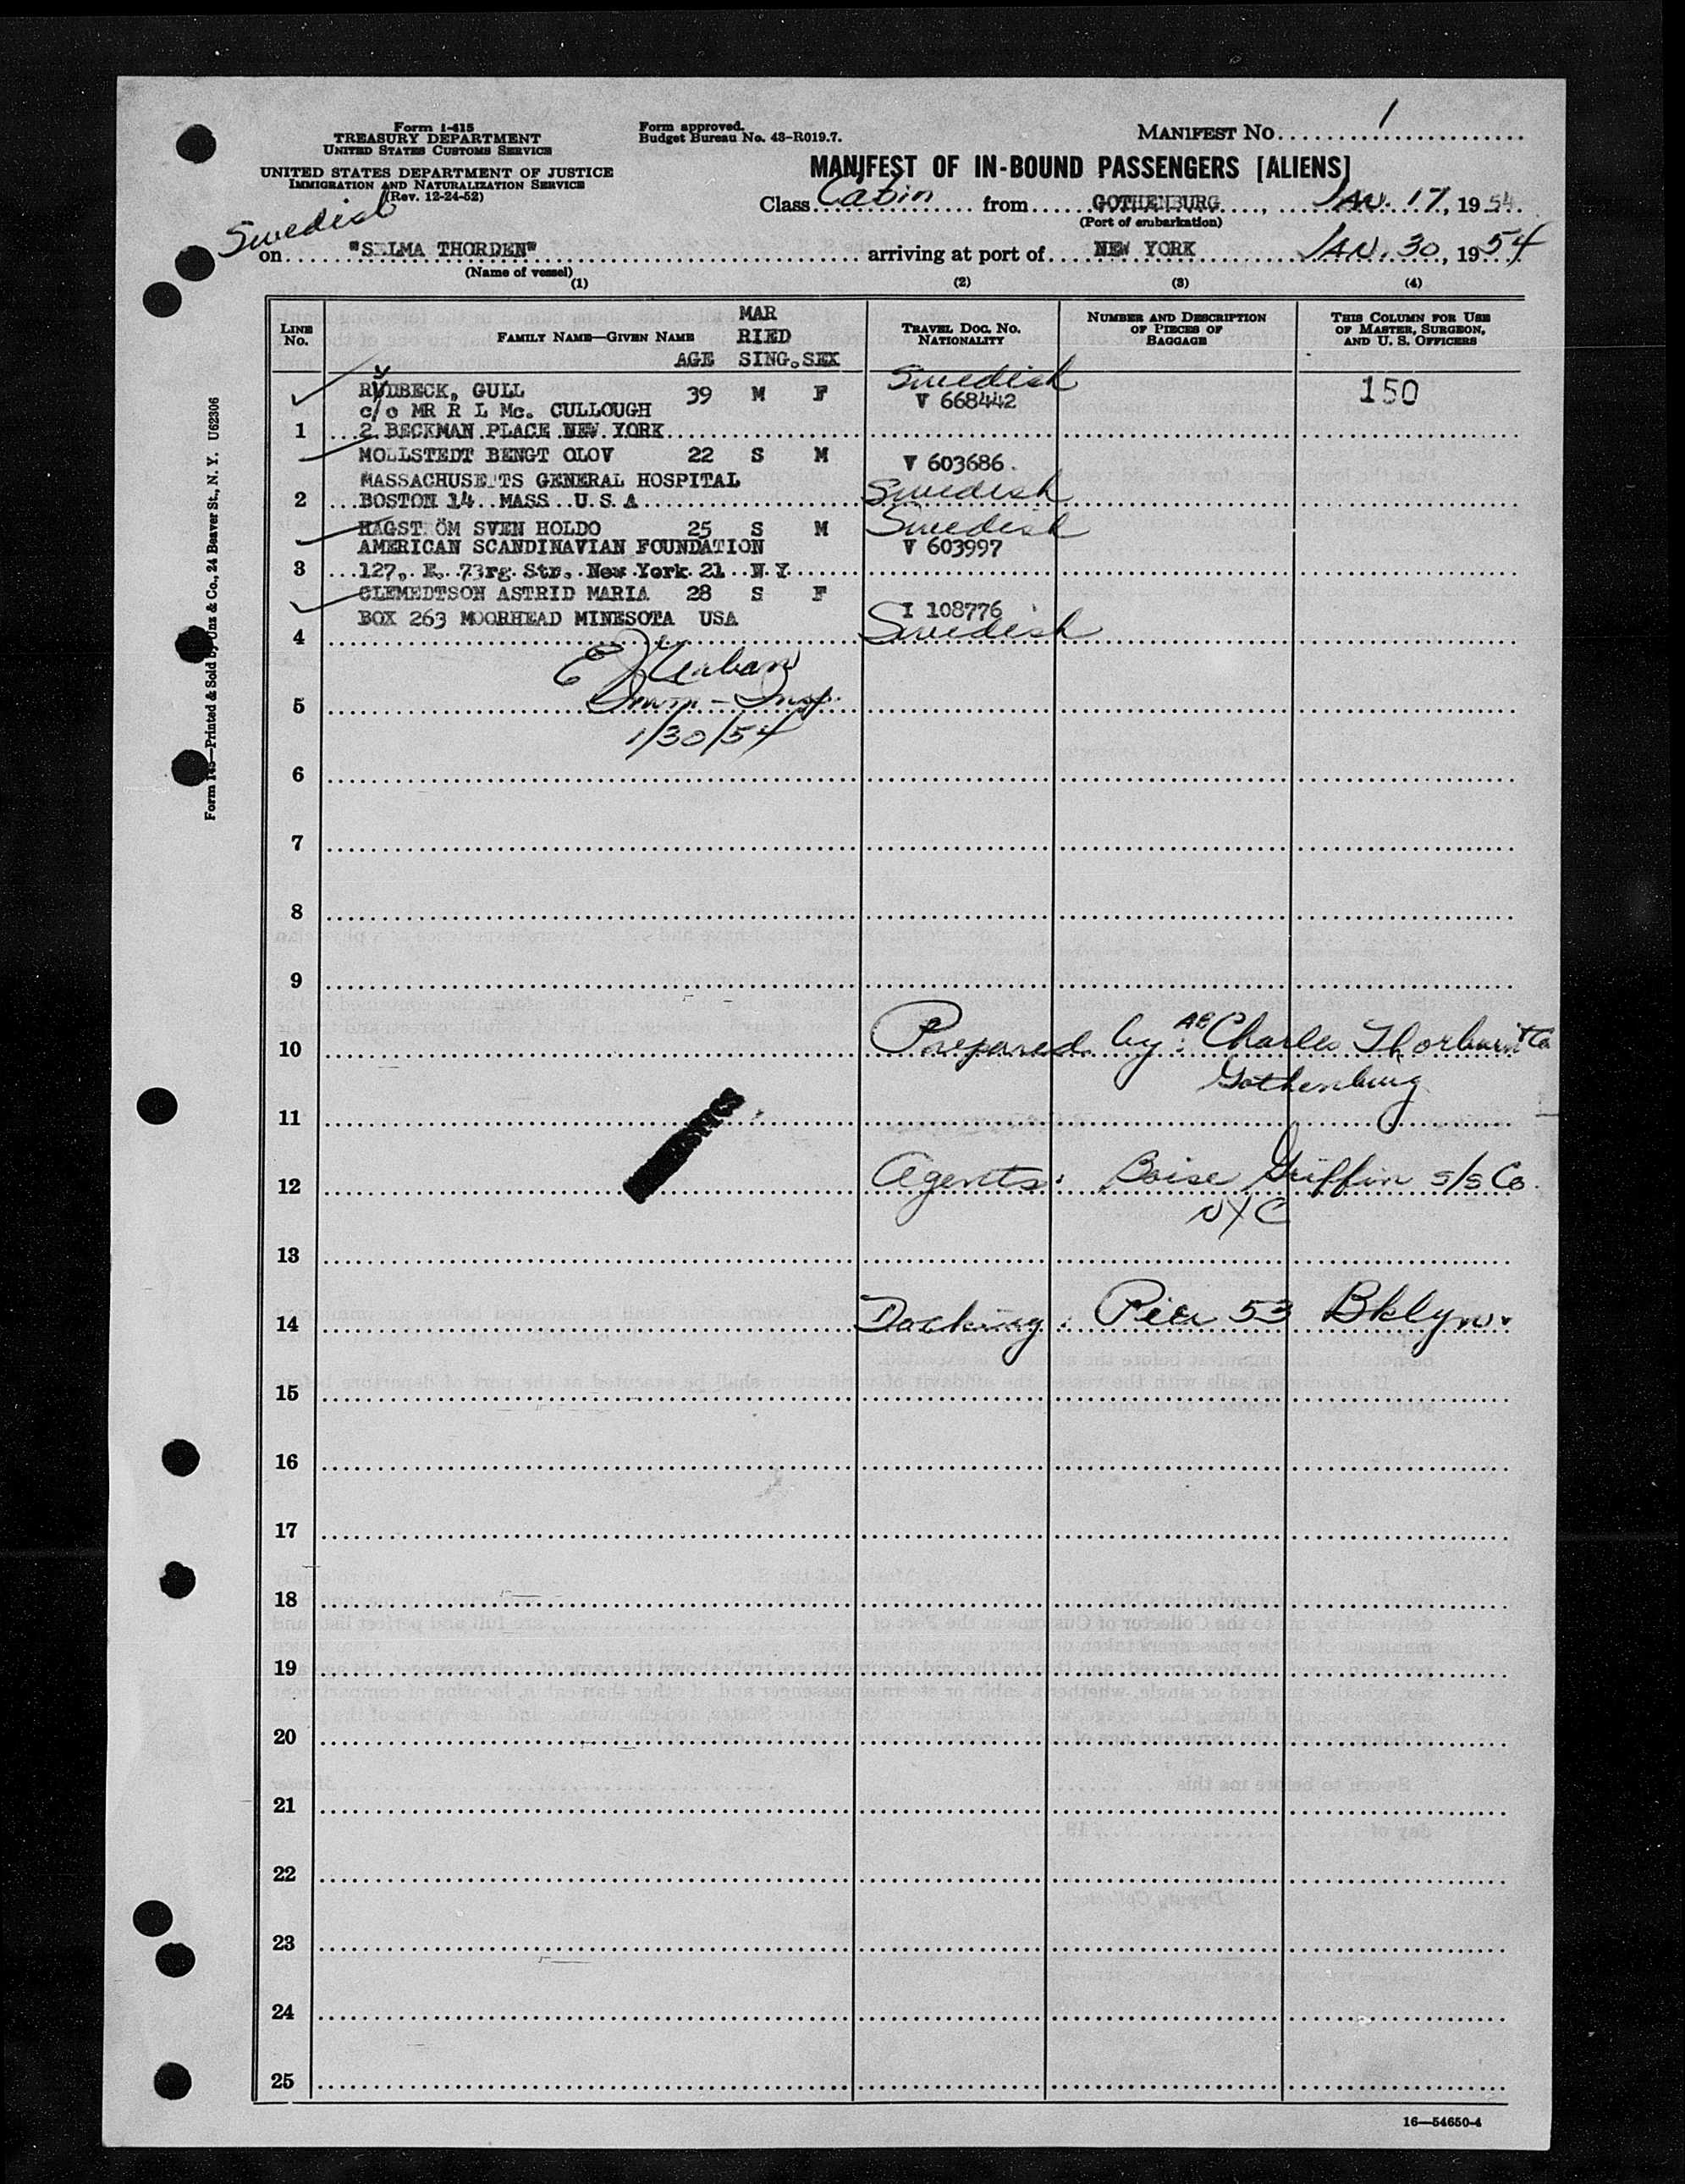 Form I-415
TREASURY DEPARTMENT
UNITED STATES CUSTOMS SERVICE
UNITED STATES DEPARTMENT OF JUSTICE
IMMIGRATION AND NATURALIZATION SERVICE
(Rev. 12-24-52)
Form approved.
Budget Bureau No. 43-R019.7.
MANIFEST No. 1
MANIFEST OF IN-BOUND PASSENGERS [ALIENS]
Class Cabin from GOTHENBURG, JAN. 17, 1954
(Port of embarkation)
Swedish
on "SELMA THORDEN" arriving at port of NEW YORK JAN. 30, 1954
(Name of vessel)
(1) (2) (3) (4)
LINE No. FAMILY NAME—GIVEN NAME AGE MARRIED SING. SEX TRAVEL DOC. NO. NATIONALITY NUMBER AND DESCRIPTION OF PIECES OF BAGGAGE THIS COLUMN FOR USE OF MASTER, SURGEON, AND U. S. OFFICERS
RYDBECK, GULL 39 M F Swedish 150
c/o MR R L Mc. CULLOUGH V 668442
1 2 BECKMAN PLACE NEW YORK
MOLLSTEDT BENGT OLOV 22 S M V 603686.
MASSACHUSETTS GENERAL HOSPITAL
2 BOSTON 14 MASS U.S.A Swedish
HAGST ÖM SVEN HOLDO 25 S M Swedish
AMERICAN SCANDINAVIAN FOUNDATION V 603997
3 127, E. 73rg Str. New York 21 N.Y.
CLEMEDTSON ASTRID MARIA 28 S F I 108776
BOX 263 MOORHEAD MINESOTA USA Swedish
4
Imm-Insp.
5
1/30/54
6
7
8
9
10 Prepared by: AB Charles Thorburn & Co
Gothenburg
11
12 Agents: Boise Griffin s/s Co.
NYC
13
14 Docking: Pier 53 Bklyn.
15
16
17
18
19
20
21
22
23
24
25
16—54650-4
Form 145—Printed & Sold by Unz & Co., 24 Beaver St., N. Y. U62306